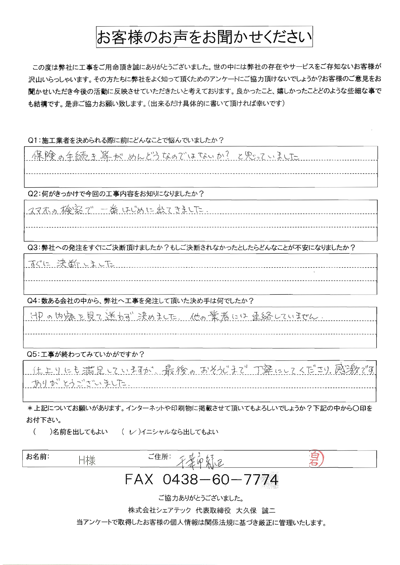 お客様のお声をお聞かせください
この度は弊社に工事をご用命頂き誠にありがとうございました。世の中には弊社の存在やサービスをご存知ないお客様が
沢山いらっしゃいます。その方たちに弊社をよく知って頂くためのアンケートにご協力頂けないでしょうか?お客様のご意見をお
聞かせいただき今後の活動に反映させていただきたいと考えております。良かったこと、嬉しかったことどのような些細な事で
も結構です。是非ご協力お願い致します。(出来るだけ具体的に書いて頂ければ幸いです)
Q1:施工業者を決められる際に前にどんなことで悩んでいましたか?
保険の手続き等がめんどうなのではないか?と思っていました
Q2:何がきっかけで今回の工事内容をお知りになりましたか?
スマホの検索で一番はじめに出てきました.
Q3:弊社への発注をすぐにご決断頂けましたか?もしご決断されなかったとしたらどんなことが不安になりましたか?
すぐに決断しました
Q4:数ある会社の中から、弊社へ工事を発注して頂いた決め手は何でしたか?
HPの内容を見て迷わず決めました. 他の業者には連絡していません.
Q5:工事が終わってみていかがですか?
仕上りにも満足していますが、最後のおそうじまで丁寧にしてくださり、感激です
ありがとうございました.
*上記についてお願いがあります。インターネットや印刷物に掲載させて頂してもよろしいでしょうか?下記の中から〇印を
お付下さい。
( )名前を出してもよい (✓)イニシャルなら出してもよい
お名前: H様 ご住所: 千葉市緑区 白石
FAX 0438-60-7774
ご協力ありがとうございました。
株式会社シェアテック 代表取締役 大久保 誠二
当アンケートで取得したお客様の個人情報は関係法規に基づき厳正に管理いたします。